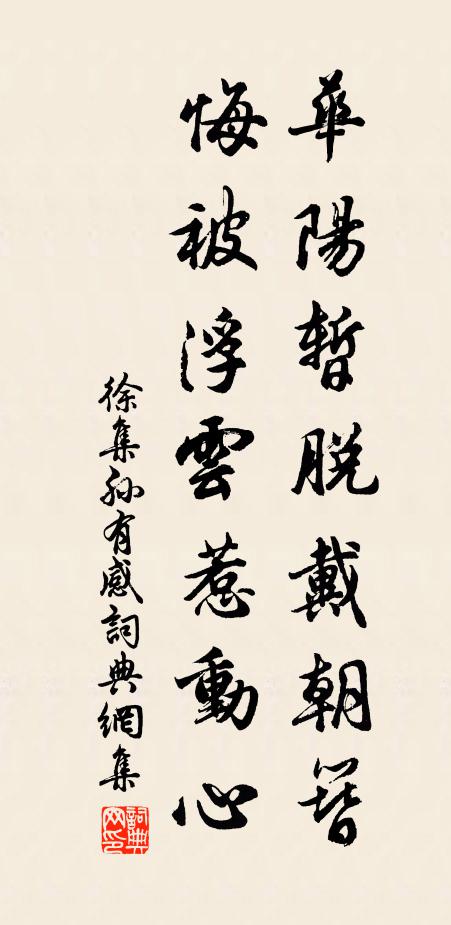 華陽暫脱戴朝簪
悔被浮雲惹動心
徐集孫有感詞典網集
詞典網印